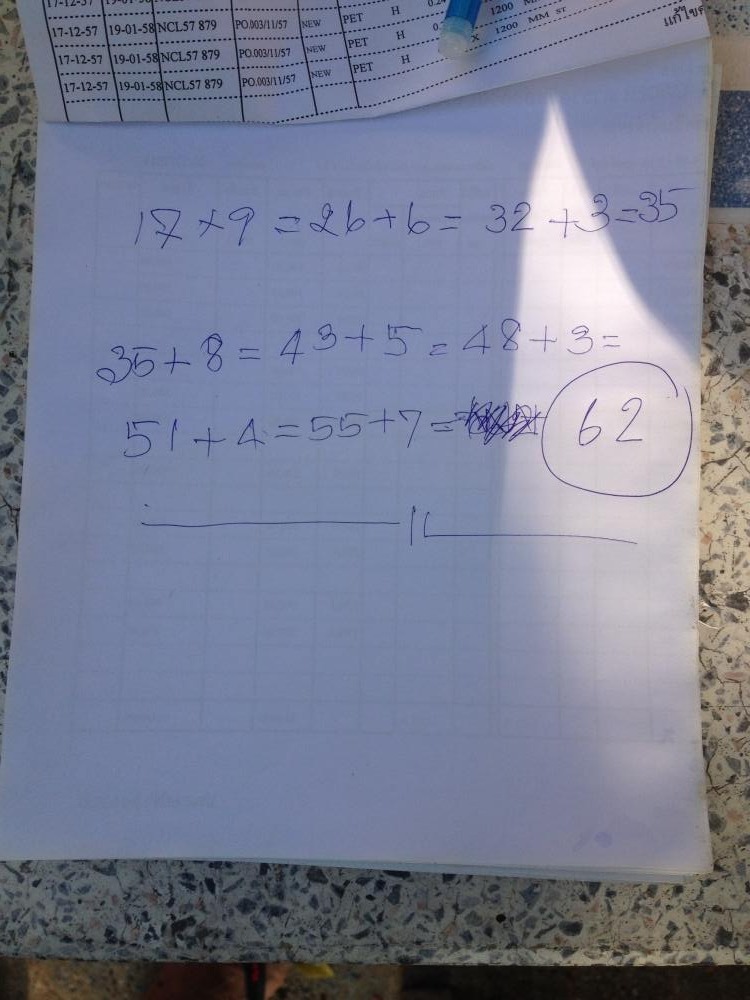 17-12-57 19-01-58 NCL57 879 PO.003/11/57 NEW PET H 1200 MM ST
17-12-57 19-01-58 NCL57 879 PO.003/11/57 NEW PET H X 1200 MM ST
17-12-57 19-01-58 NCL57 879 PO.003/11/57 NEW PET H
17 × 9 = 26 + 6 = 32 + 3 = 35
35 + 8 = 43 + 5 = 48 + 3 =
51 + 4 = 55 + 7 = 62